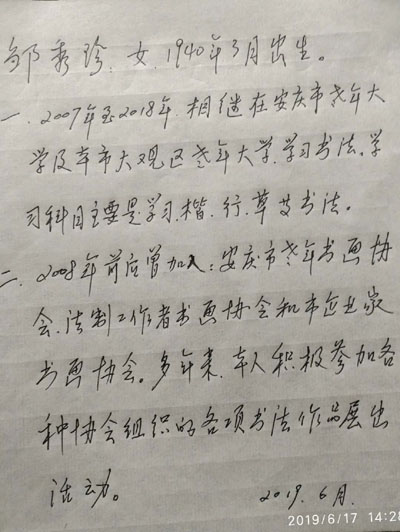 邹秀珍、女、1940年3月出生。
一、2007年至2018年相继在安庆市老年大
学及本市大观区老年大学学习书法。学
习科目主要是学习、楷、行、草及书法。
二、2008年前后曾加入：安庆市老年书画协
会、法制工作者书画协会和市企业家
书画协会。多年来、本人积极参加各
种协会组织的各项书法作品展出
活动。
2019.6月.
2019/6/17 14:28